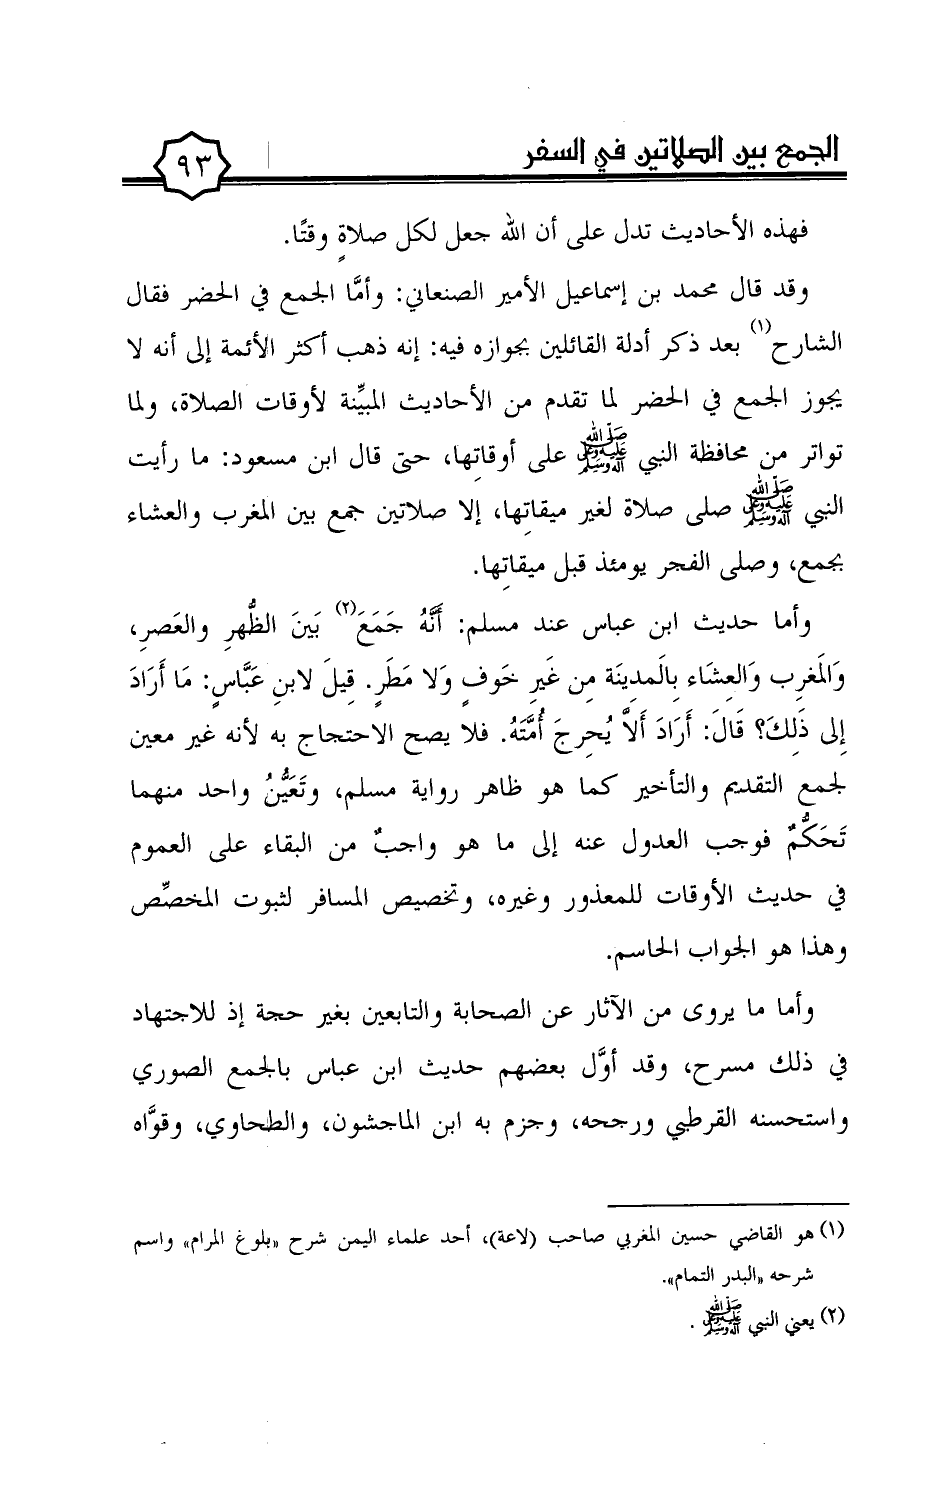 الجمع بين الصلاتين في السفر
٩٣
فهذه الأحاديث تدل على أن الله جعل لكل صلاةٍ وقتًا.
وقد قال محمد بن إسماعيل الأمير الصنعاني: وأمَّا الجمع في الحضر فقال
الشارح(١) بعد ذكر أدلة القائلين بجوازه فيه: إنه ذهب أكثر الأئمة إلى أنه لا
يجوز الجمع في الحضر لما تقدم من الأحاديث المبيِّنة لأوقات الصلاة، ولما
تواتر من محافظة النبي صلى الله عليه وآله وسلم على أوقاتِها، حتى قال ابن مسعود: ما رأيت
النبي صلى الله عليه وآله وسلم صلى صلاة لغير ميقاتِها، إلا صلاتين جمع بين المغرب والعشاء
بجمع، وصلى الفجر يومئذ قبل ميقاتِها.
وأما حديث ابن عباس عند مسلم: أَنَّهُ جَمَعَ(٢) بَينَ الظُّهرِ والعَصرِ،
وَالمَغرِب وَالعِشَاء بِالمدِينَة مِن غَيرِ خَوفٍ وَلا مَطَرٍ. قِيلَ لابنِ عَبَّاسٍ: مَا أَرَادَ
إِلى ذَلِكَ؟ قَالَ: أَرَادَ أَلاَّ يُحرِجَ أُمَّتَهُ. فلا يصح الاحتجاج به لأنه غير معين
لجمع التقديم والتأخير كما هو ظاهر رواية مسلم، وتَعَيُّنُ واحد منهما
تَحَكُّمٌ فوجب العدول عنه إلى ما هو واجبٌ من البقاء على العموم
في حديث الأوقات للمعذور وغيره، وتخصيص المسافر لثبوت المخصِّص
وهذا هو الجواب الحاسم.
وأما ما يروى من الآثار عن الصحابة والتابعين بغير حجة إذ للاجتهاد
في ذلك مسرح، وقد أوَّل بعضهم حديث ابن عباس بالجمع الصوري
واستحسنه القرطبي ورجحه، وجزم به ابن الماجشون، والطحاوي، وقوَّاه
(١) هو القاضي حسين المغربي صاحب (لاعة)، أحد علماء اليمن شرح «بلوغ المرام» واسم
شرحه «البدر التمام».
(٢) يعني النبي صلى الله عليه وآله وسلم .